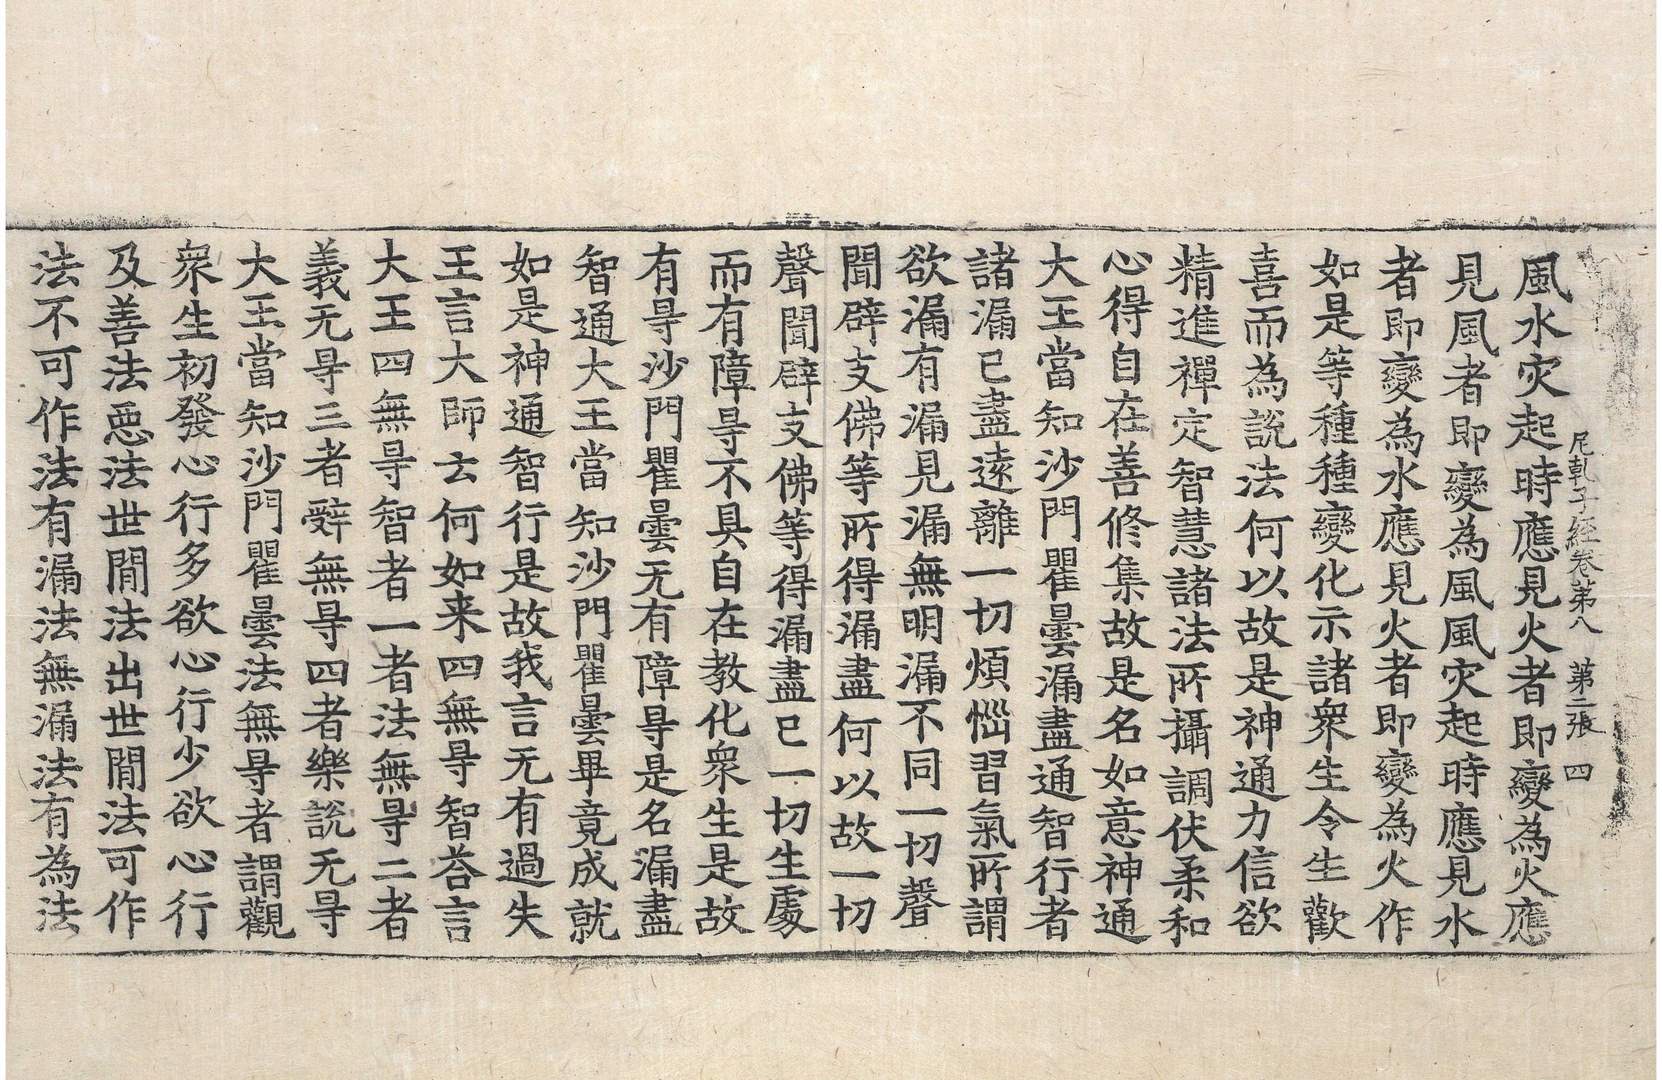 尼乹子經卷第八 第二張 四
風水灾起時應見火者即變為火應
見風者即變為風風灾起時應見水
者即變為水應見火者即變為火作
如是等種種變化示諸衆生令生歡
喜而為說法何以故是神通力信欲
精進禪定智慧諸法所攝調伏柔和
心得自在善修集故是名如意神通
大王當知沙門瞿曇漏盡通智行者
諸漏已盡遠離一切煩惱習氣所謂
欲漏有漏見漏無明漏不同一切聲
聞辟支佛等所得漏盡何以故一切
聲聞辟支佛等得漏盡已一切生處
而有障㝵不具自在教化衆生是故
有㝵沙門瞿曇无有障㝵是名漏盡
智通大王當知沙門瞿曇畢竟成就
如是神通智行是故我言无有過失
王言大師云何如来四無㝵智荅言
大王四無㝵智者一者法無㝵二者
義无㝵三者辤無㝵四者樂說无㝵
大王當知沙門瞿曇法無㝵者謂觀
衆生初發心行多欲心行少欲心行
及善法惡法世閒法出世閒法可作
法不可作法有漏法無漏法有為法